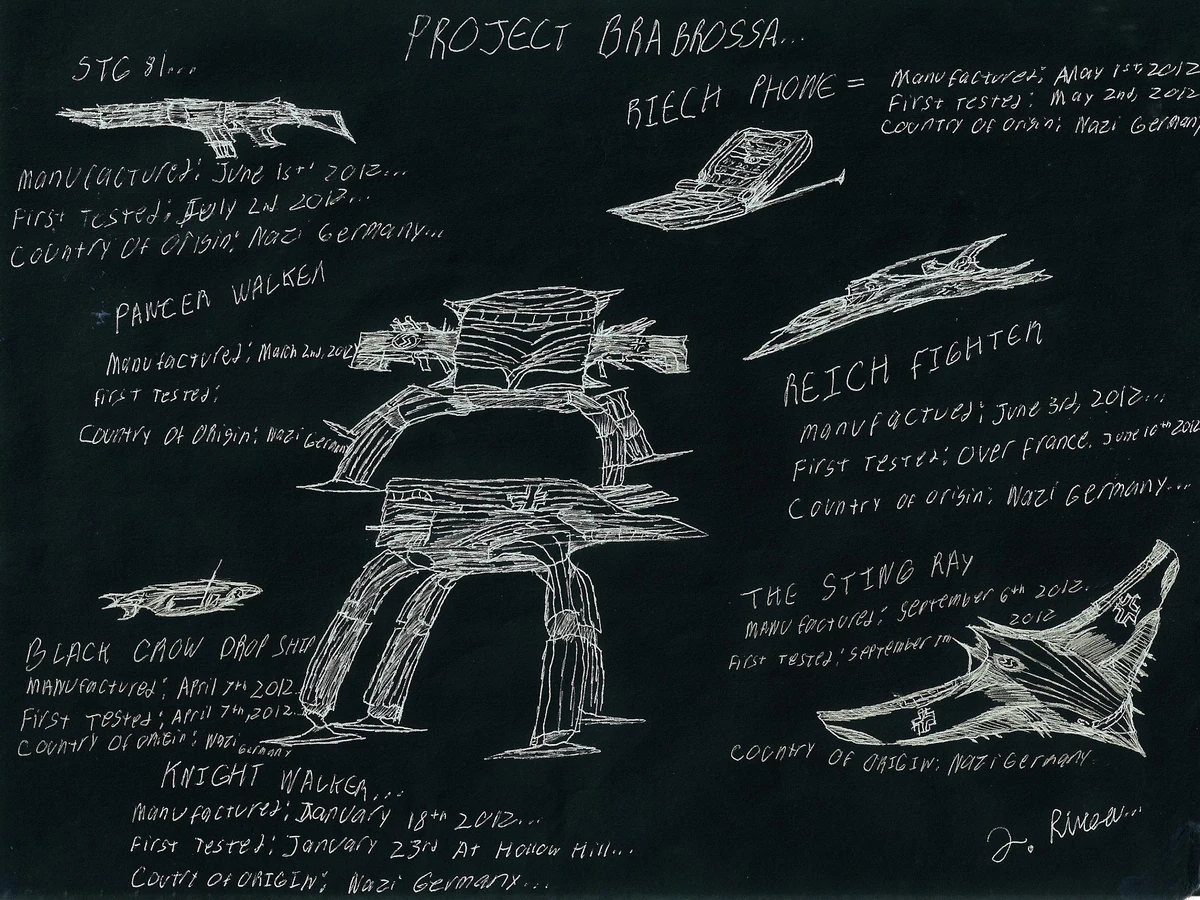 PROJECT BRABROSSA...
STG 81...
Manufactured: June 1st 2012...
First Tested: July 2nd 2012...
Country Of Origin: Nazi Germany...
RIECH PHONE =
Manufactured: May 1st, 2012
First Tested: May 2nd, 2012
Country Of Origin: Nazi Germany
PANCER WALKER
Manufactured: March 2nd, 2012
First Tested:
Country Of Origin: Nazi Germany
REICH FIGHTER
Manufactued: June 3rd, 2012...
First Tested: Over France. June 10th 2012
Country of Origin: Nazi Germany...
BLACK CROW DROP SHIP
Manufactured: April 7th 2012.
First Tested: April 7th, 2012...
Country Of Origin: Nazi
Germany
THE STING RAY
Manufactured: September 6th 2012.
2012
First Tested: September 7th
Country Of ORIGIN: Nazi Germany
KNIGHT WALKER...
Manufactured: January 18th 2012...
First Tested: January 23rd At Hollow Hill...
Coutry Of ORIGIN: Nazi Germany...
J.